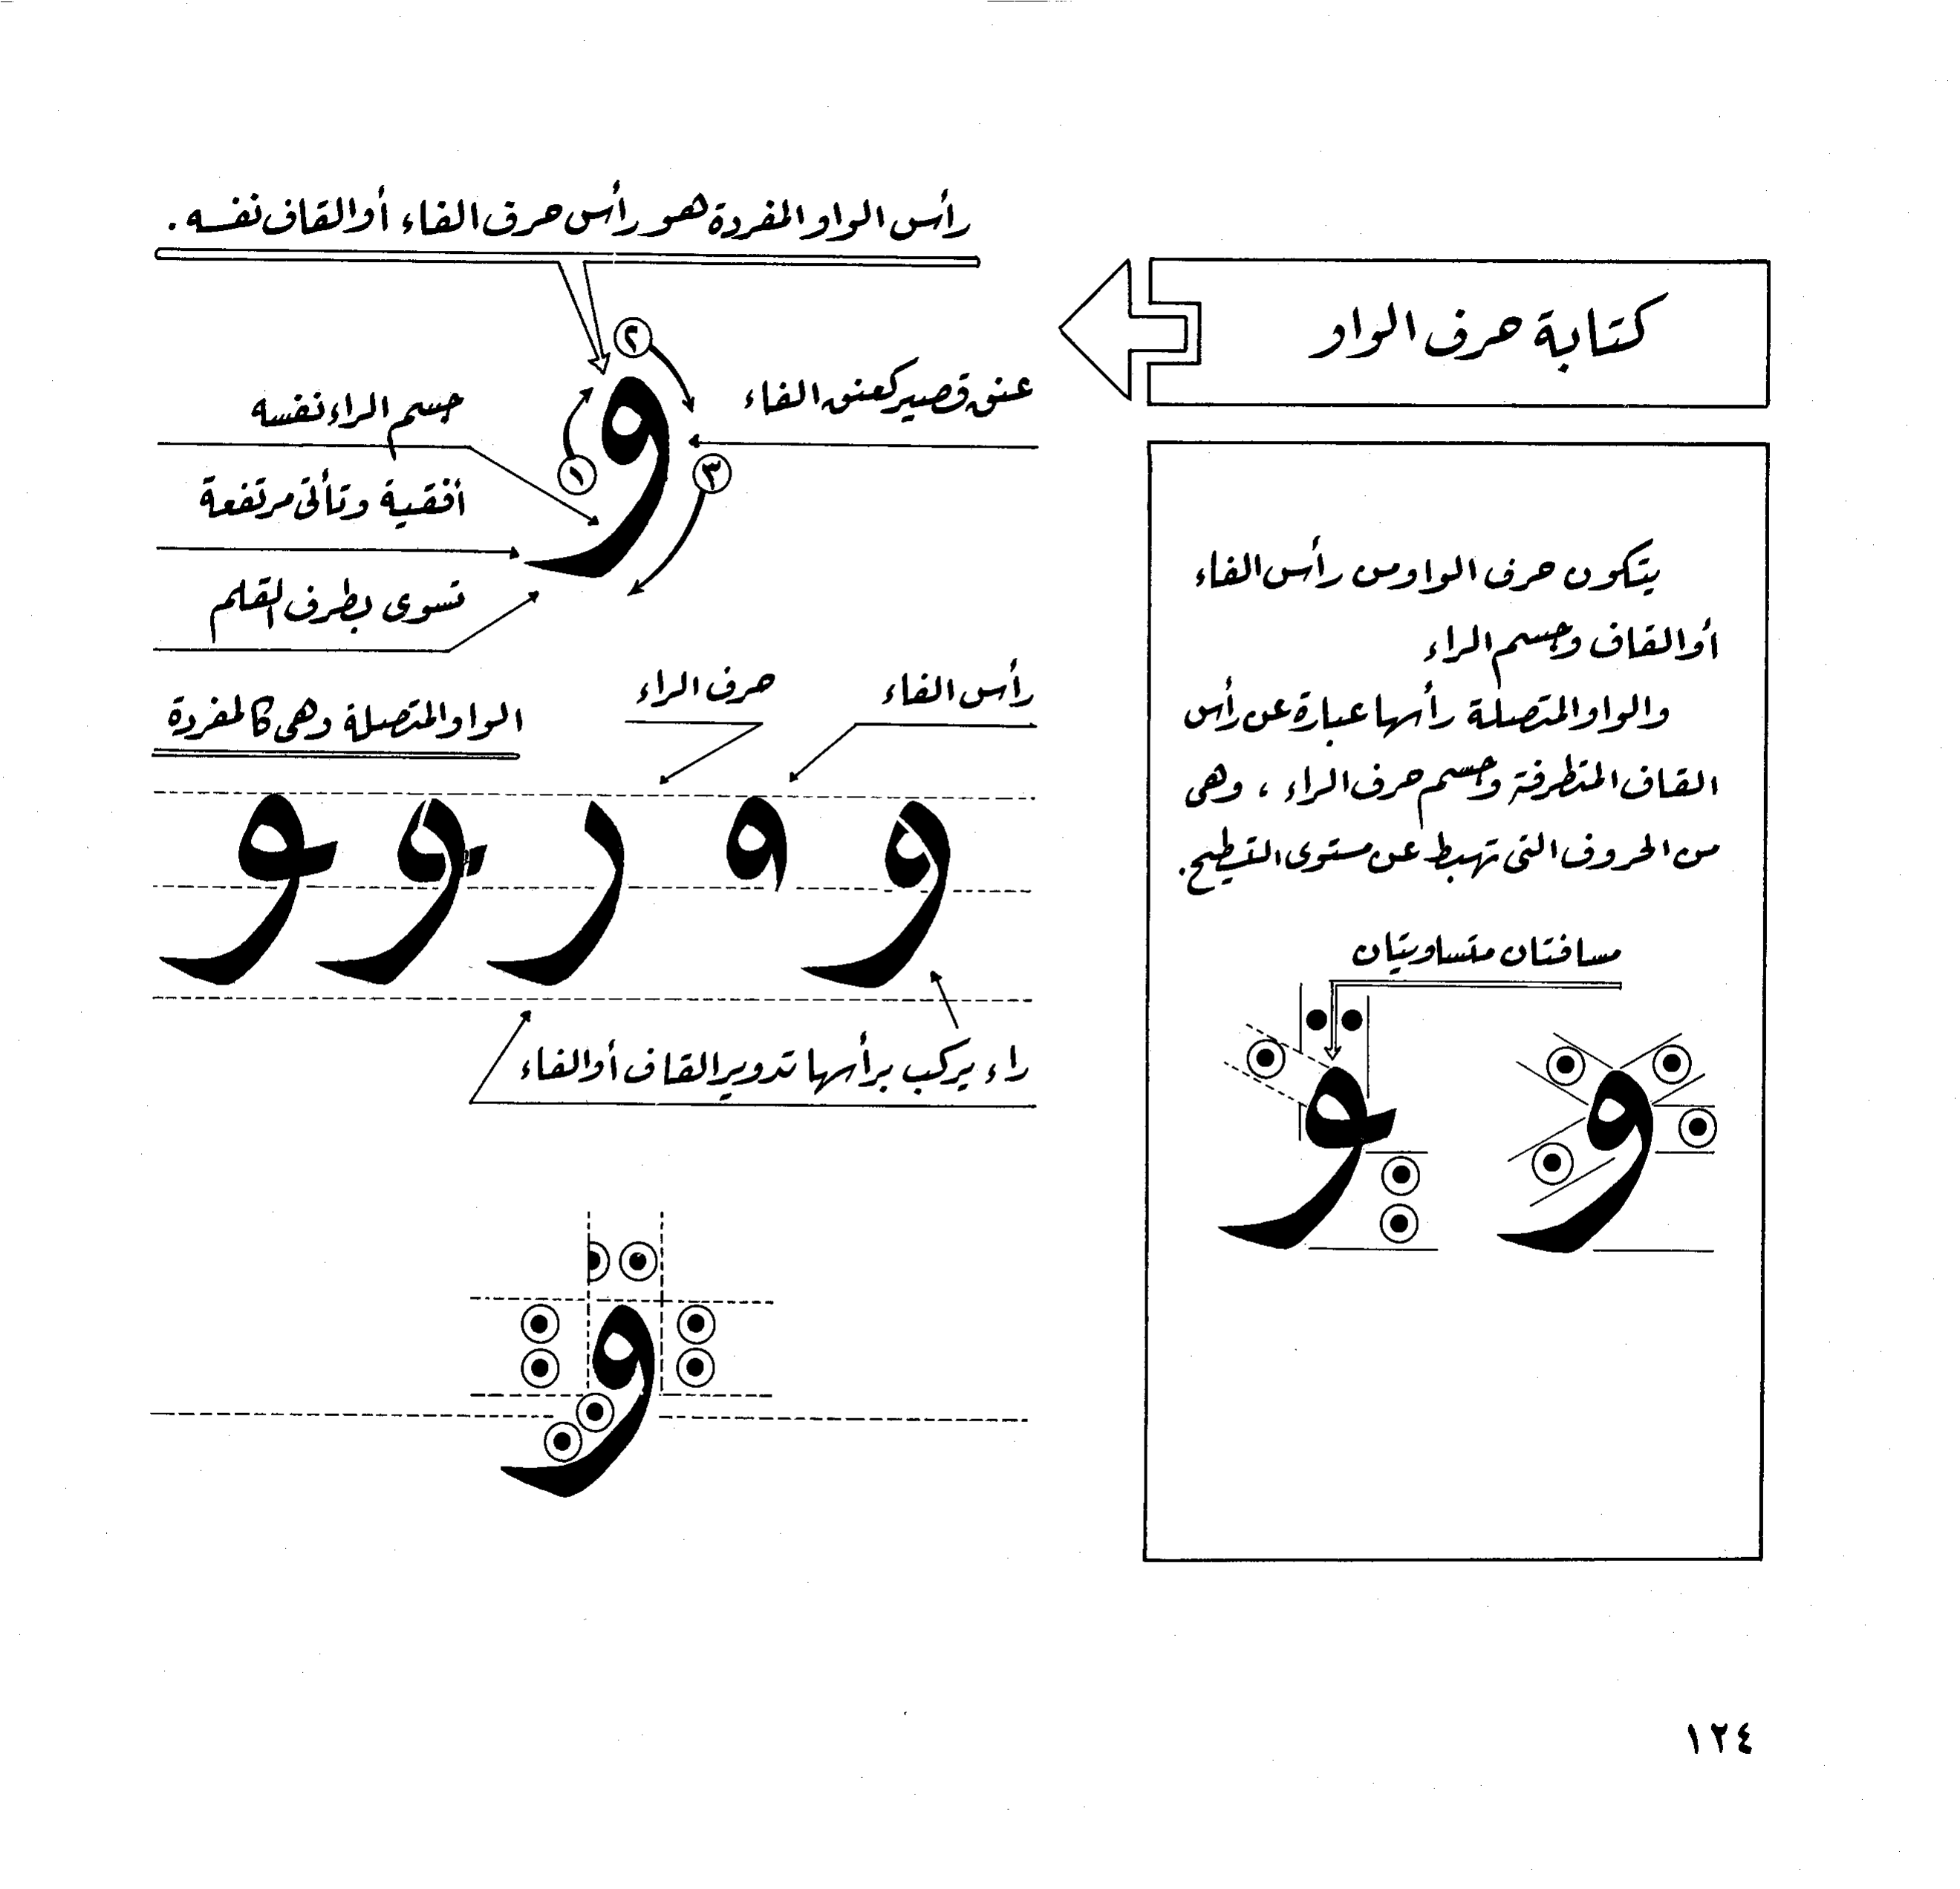 كتابة حرف الواو
يتكون حرف الواو من رأس الفاء
أو القاف وجسم الراء
والواو المتصلة رأسها عبارة عن رأس
القاف المتطرفة وجسم حرف الراء ، وهى
من الحروف التى تهبط عن مستوى التسطيح.
مسافتان متساويتان
و
و
رأس الواو المفردة هو رأس حرف الفاء أو القاف نفسه .
٢
عنق قصير كعنق الفاء
جسم الراء نفسه
و
١
٣
أفقية وتأتى مرتفعة
تسوى بطرف القلم
رأس الفاء
حرف الراء
الواو المتصلة وهى كالمفردة
و و ر و و
راء يركب برأسها تدوير القاف أو الفاء
و
١٢٤